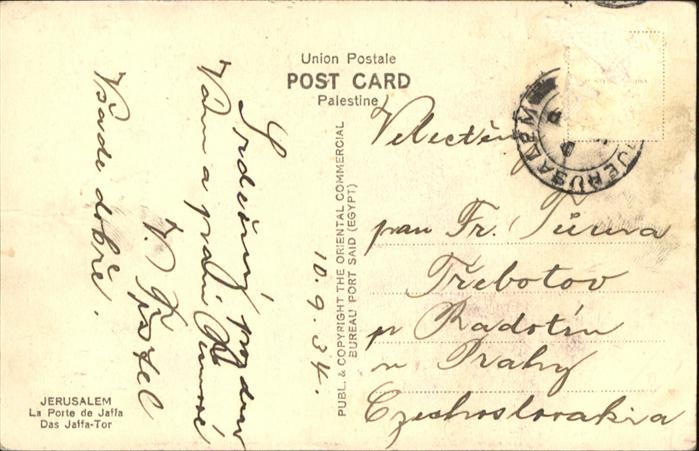 Union Postale
POST CARD
Palestine
JERUSALEM
Velectěný
pan Fr. Tůma
Třebotov
p Radotín
u Prahy
Czechoslovakia
10.9.34.
PUBL. & COPYRIGHT THE ORIENTAL COMMERCIAL
BUREAU PORT SAID (EGYPT)
Srdečný pozdrav
Vám a paní
Všade dobre.
JERUSALEM
La Porte de Jaffa
Das Jaffa-Tor